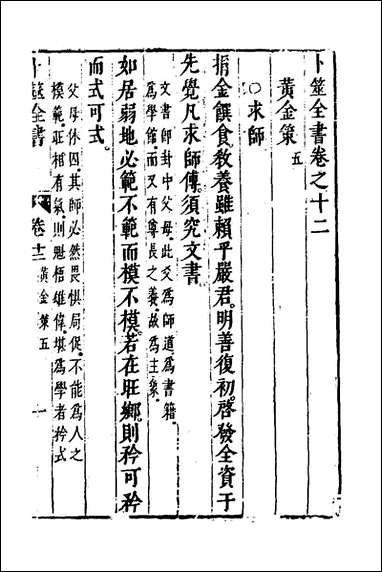 卜筮全書卷之十二
黃金策五
○求師
捐金饌食教養雖賴乎嚴君。明善復初。啓發全資于
先覺凡求師傅。須究文書。
文書師卦中父母。此爻爲師道爲書籍。
爲學館。而又有尊長之義。故爲主象。
如居弱地必範不範而模不模。若在旺鄉。則矜可矜
而式可式。
父母休囚。其師必然畏懼局促。不能爲人之
模範。旺相有氣。則魁梧雄偉。堪爲學者矜式
卜筮全書
卷十二
黃金策五
一